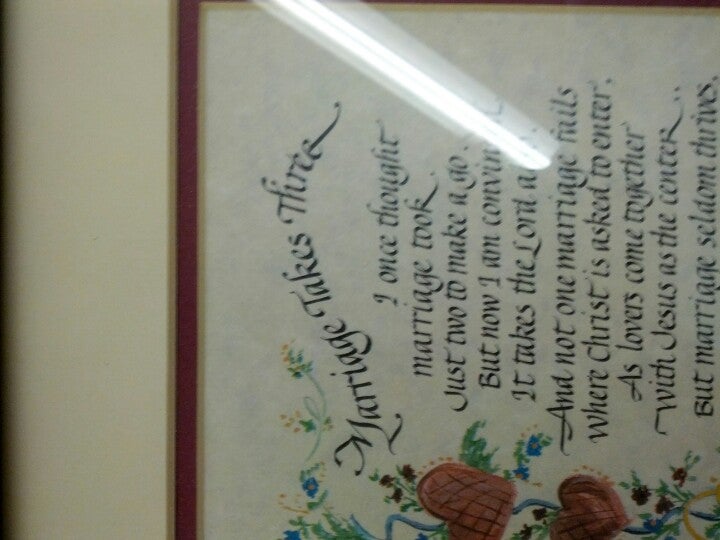 Marriage Takes Three
I once thought
marriage took
Just two to make a go.
But now I am
It takes the Lord
And not one marriage fails
Where Christ is asked to enter.
As lovers come together
With Jesus as the center
But marriage seldom thrives.